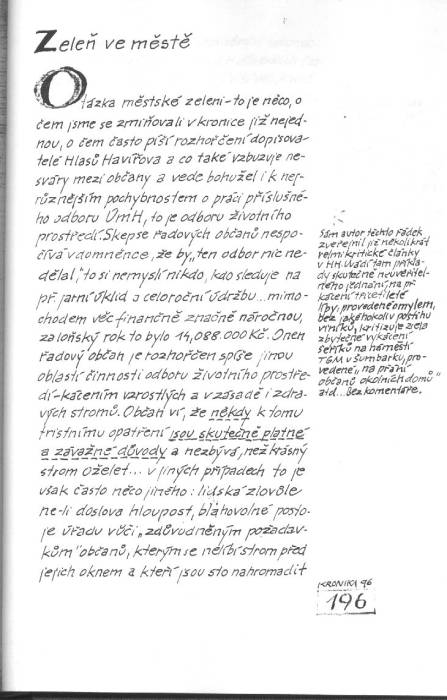 Zeleň ve městě
Otázka městské zeleni - to je něco, o
čem jsme se zmiňovali v kronice již nejed-
nou, o čem často píší rozhořčení dopisova-
telé Hlasů Havířova a co také vzbuzuje ne-
sváry mezi občany a vede bohužel i k nej-
různějším pochybnostem o práci příslušné-
ho odboru ÚmH, to je odboru životního
prostředí. Skepse řadových občanů nespo-
čívá v domněnce, že by "ten odbor nic ne-
dělal," to si nemyslí nikdo, kdo sleduje na
př. jarní úklid a celoroční údržbu... mimo-
chodem věc finančně značně náročnou,
za loňský rok to bylo 14,088.000 Kč. Onen
řadový občan je rozhořčen spíše jinou
oblastí činnosti odboru životního prostře-
dí - kácením vzrostlých a v zásadě i zdra-
vých stromů. Občan ví, že někdy k tomu
tristnímu opatření jsou skutečně platné
a závažné důvody a nezbývá, než krásný
strom oželet... v jiných případech to je
však často něco jiného: lidská zlovůle
ne-li doslova hloupost, blahovolné posto-
je úřadu vůči "zdůvodněným požadav-
kům" občanů, kterým se nelíbí strom před
jejich oknem a kteří jsou sto nahromadit
Sám autor těchto řádek
zveřejnil již několikrát
velmi kritické články
v HH. Uvádí tam příkla-
dy skutečně neuvěřitel-
ného jednání, na př.
kácení třicetileté
lípy, provedené omylem,
bez jakéhokoliv postihu
viníků, kritizuje zcela
zbytečné vykácení
šeříků na náměstí
TGM v Šumbarku, pro-
vedené "na přání
občanů okolních domů"
atd... Bez komentáře.
KRONIKA 96
196